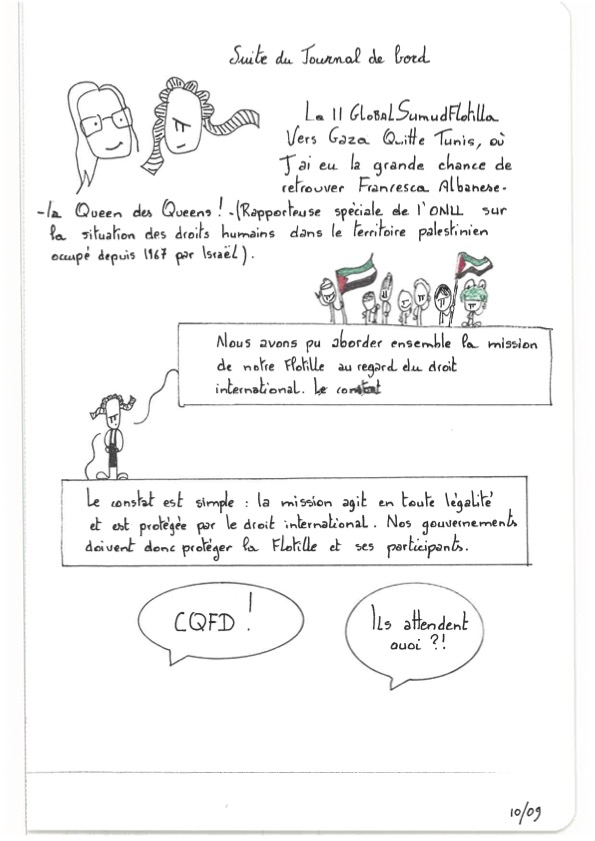 Suite du Journal de bord
La 11 GlobalSumudFlotilla
Vers Gaza Quitte Tunis, où
J'ai eu la grande chance de
retrouver Francesca Albanese -
- la Queen des Queens ! - (Rapporteuse spéciale de l'ONU sur
la situation des droits humains dans le territoire palestinien
occupé depuis 1967 par Israël).
Nous avons pu aborder ensemble la mission
de notre Flotille au regard du droit
international. Le constat
Le constat est simple : la mission agit en toute légalité
et est protégée par le droit international. Nos gouvernements
doivent donc protéger la Flotille et ses participants.
CQFD !
Ils attendent
quoi ?!
10/09